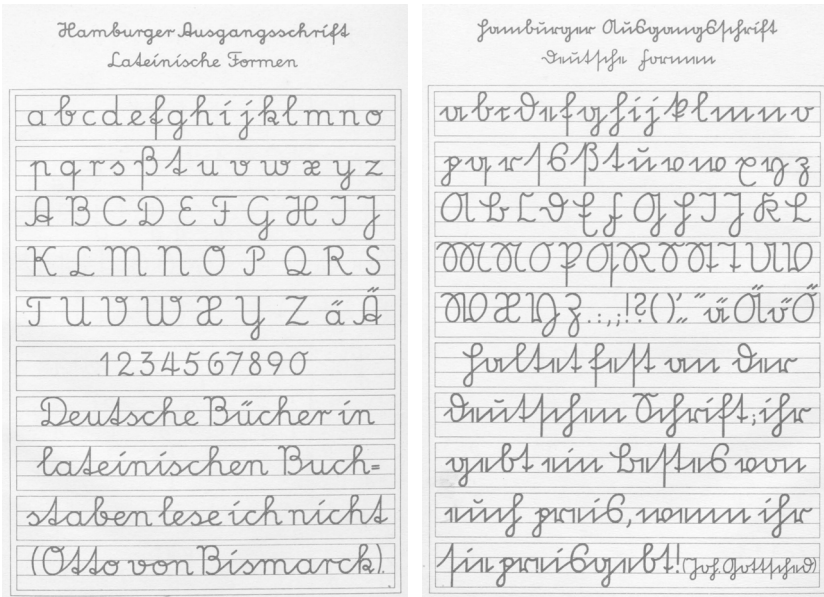 Hamburger Ausgangsschrift
Lateinische Formen
a b c d e f g h i j k l m n o
p q r s ß t u v w x y z
A B C D E F G H I J
K L M N O P Q R S
T U V W X Y Z ä Ä
1234567890
Deutsche Bücher in
lateinischen Buch=
staben lese ich nicht
(Otto von Bismarck).
Hamburger Ausgangsſchrift
Deutſche Formen
a b c d e f g h i j k l m n o
p q r ſ s ß t u v w x y z
A B C D E F G H I J K L
M N O P Q R S St T U V
W X Y Z . : , ; ! ? ( ) ' „ “ ä Ä ö Ö
Haltet feſt an der
deutſchen Schrift; ihr
gebt ein Beſtes von
euch preis, wenn ihr
ſie preisgebt! (Joh. Gottſched)